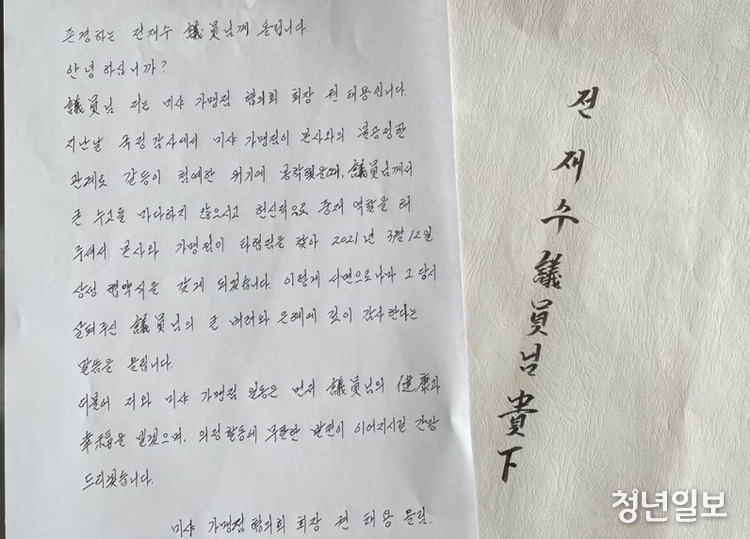 존경하는 전재수 議員님께 올립니다.
안녕하십니까?
議員님 저는 미샤 가맹점 협의회 회장 권태용입니다.
지난날 국정감사에서 미샤 가맹점이 본사와의 불공정한
관계로 갈등이 첨예한 위기에 봉착했을때, 議員님께서
큰 수고를 마다하지 않으시고 헌신적으로 중재 역할을 해
주셔서 본사와 가맹점이 타협점을 찾아 2021년 3월 12일
상생 협약식을 갖게 되었습니다. 이렇게 서면으로나마 그 당시
살펴주신 議員님의 큰 배려와 은혜에 깊이 감사한다는
말씀을 올립니다.
더불어 저와 미샤 가맹점 일동은 먼저 議員님의 健康과
幸福을 빌겠으며, 의정활동에 무한한 발전이 이어지시길 간망
드리겠습니다.
미샤 가맹점 협의회 회장 권 태용 올림.
전재수 議員님 貴下
청년일보